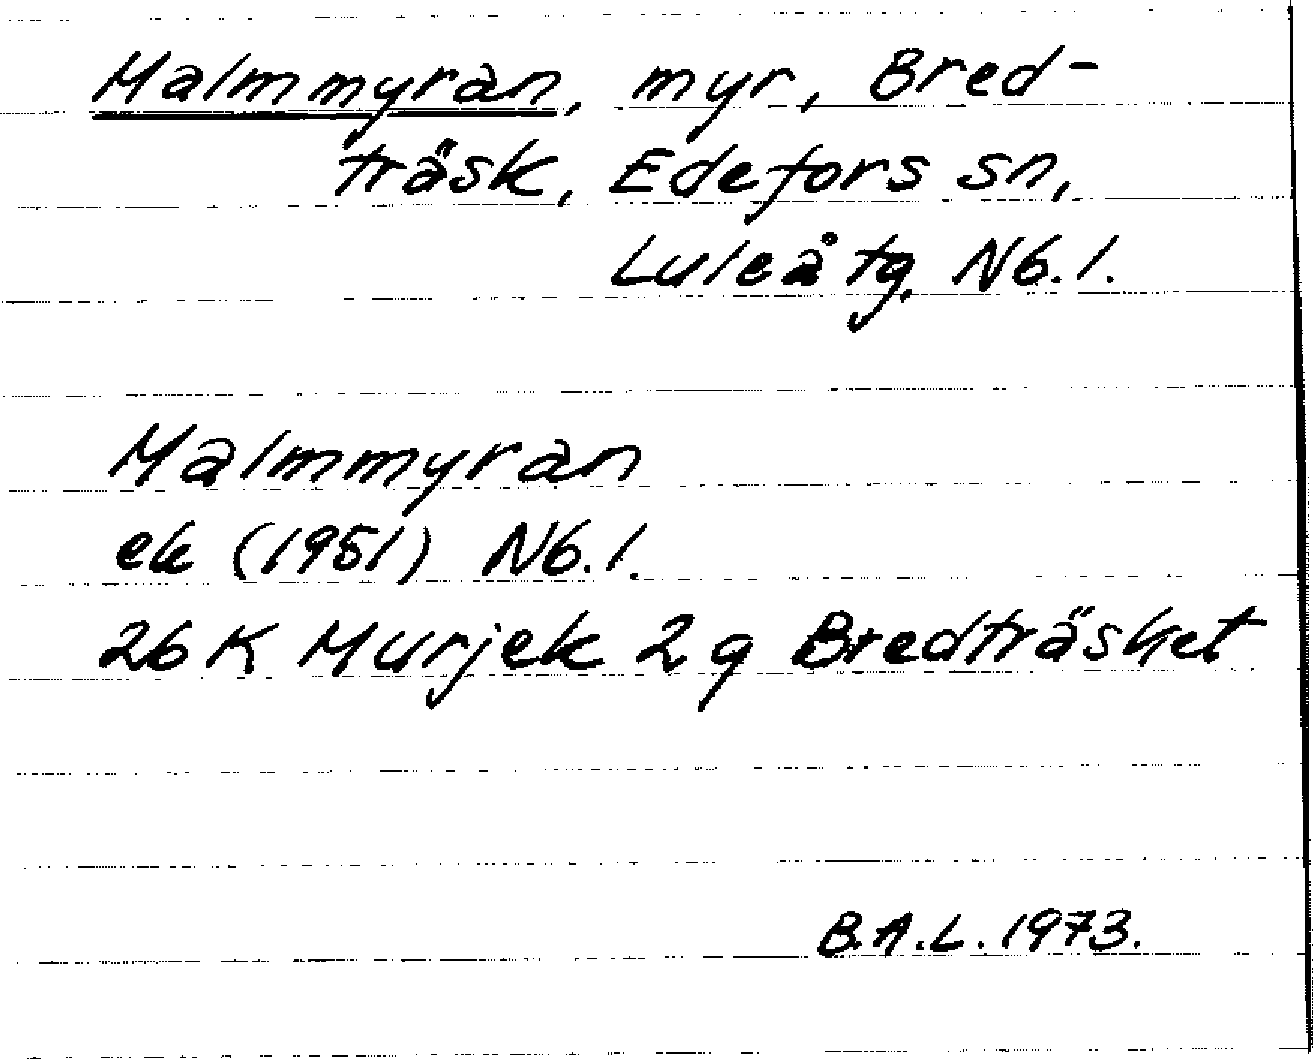 Malmmyran, myr, Bred-
träsk, Edefors sn,
Luleå tg, Nb.l.
Malmmyran
ek (1951) Nb.l.
26 K Murjek 2 g Bredträsket
B.A.L. 1973.